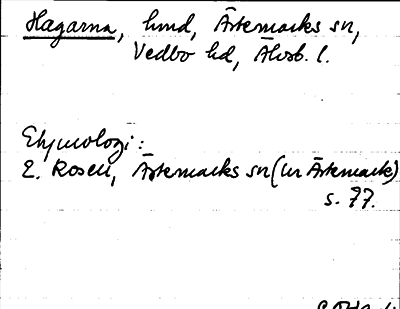 Hagarna, hmd, Ärtemarks sn,
Vedbo hd, Älvsb. l.
Etymologi:
E. Rosell, Ärtemarks sn (ur Ärtemark)
s. 77.